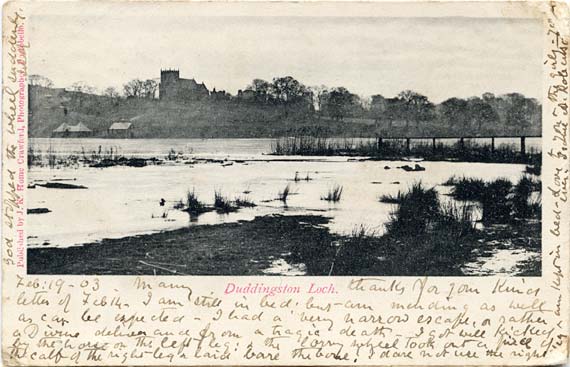 Duddingston Loch.
Published by J. R. Home Crawford, Photographer,
Feb-19-03 - Many thanks for your kind
letter of Feb 14 - I am still in bed; but am mending as well
as can be expected - I had a very narrow escape, or rather
a Divine deliverance from a tragic death - I got well kicked
by the horse on the left leg: the lorry wheel took out a piece of
the calf of the right leg & laid bare the bone! I dare not use the right
am kept in bed - how
God stopped the wheel suddenly